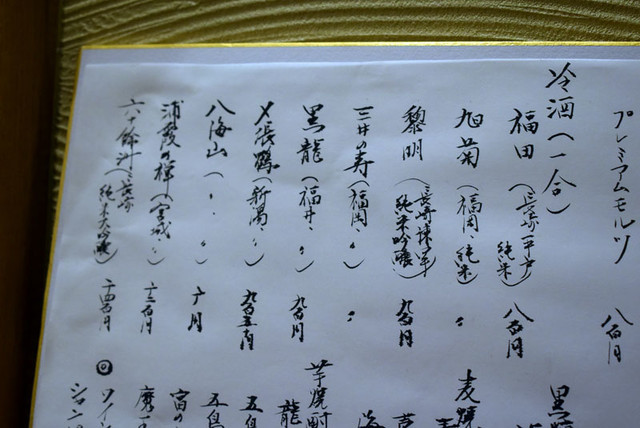 プレミアムモルツ 八百円
冷酒(一合)
福田(長崎・平戸 純米) 八百円
旭菊(福岡・純米) 〃
黎明(長崎諫早 純米吟醸) 九百円
三井の寿(福岡・〃) 〃
黒龍(福井・〃) 九百円
〆張鶴(新潟・〃) 九百五十円
八海山(〃・〃) 千円
浦霞の禅(宮城・〃) 千二百円
六十餘洲(長崎 純米大吟醸) 千四百円
黒
麦焼
芋焼酎
龍
五島
五島
富の
魔
◎ワイン
シャン